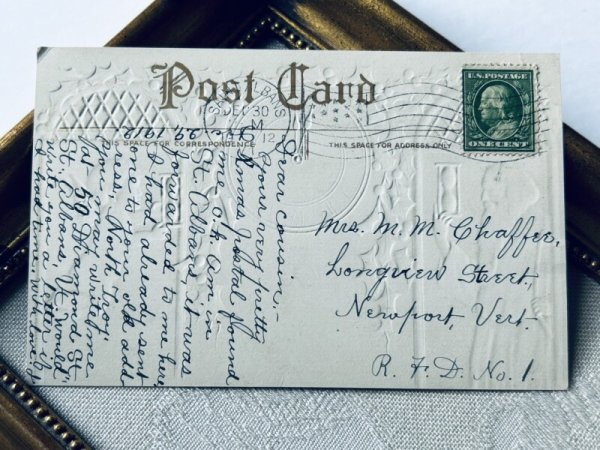 Post Card
ALBANS
DEC 30
M
12
U.S. POSTAGE
ONE CENT
THIS SPACE FOR CORRESPONDENCE
THIS SPACE FOR ADDRESS ONLY
Dec. 29, 1912.
Dear cousin,-
Your very pretty
Xmas postal found
me O.K. am in
St. Albans it was
forwarded to me here
I had already sent
one to your old add-
ress, North Troy.
You can write me
at 59 St.
St. Albans, Vt. Would
write you a letter if
I had time, with love
Mrs. M. M. Chaffee,
Longview Street,
Newport, Vert.
R. F. D. No. 1.